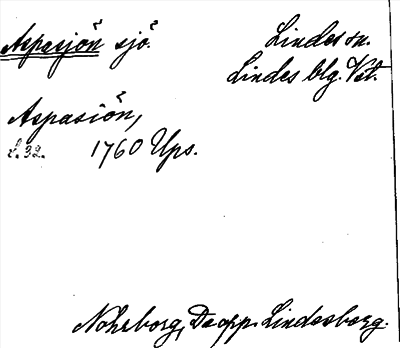 Aspasjön sjö.
Lindes sn.
Lindes blg. Vst.
Aspasiön,
l. 32. 1760 Ups.
Nohrborg, De app. Lindesberg.